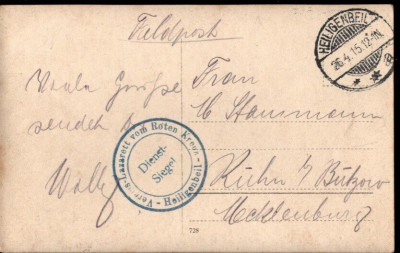 Feldpost
HEILIGENBEIL
26.4.15.12-1N.
Viele Grüße
senden
Wally
Vereins-Lazarett vom Roten Kreuz - Heiligenbeil
Dienst-
Siegel
Frau
Bützow
Mecklenburg
729